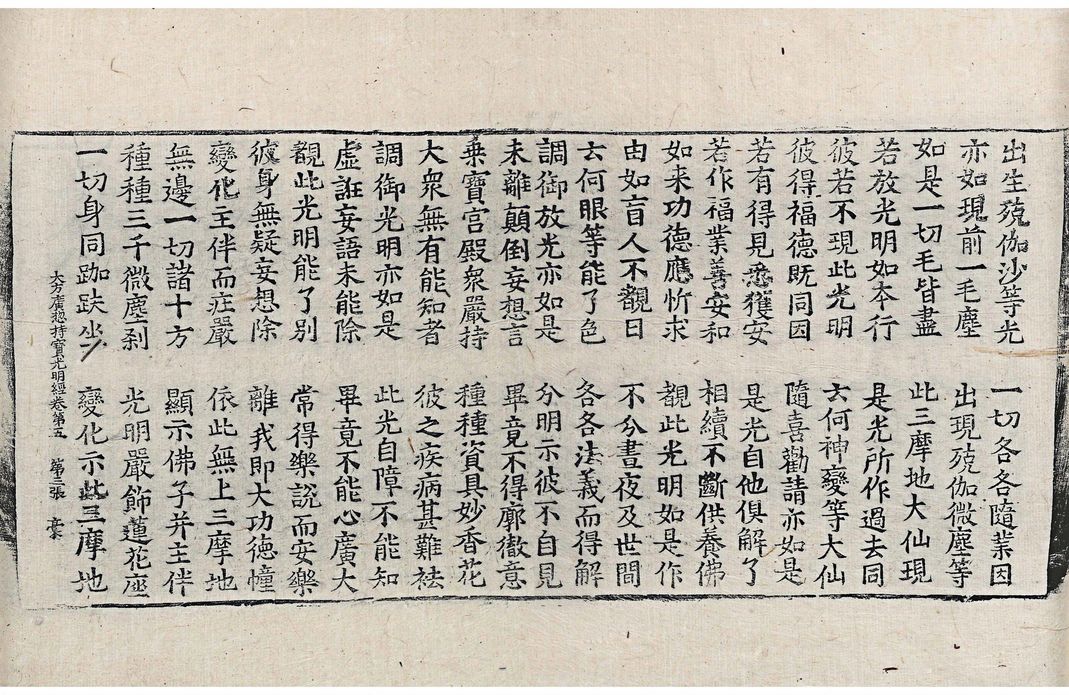 出生殑伽沙等光　一切各各隨業因
亦如現前一毛塵　出現殑伽微塵等
如是一切毛皆盡　此三摩地大仙現
若放光明如本行　是光所作過去同
彼若不現此光明　云何神變等大仙
彼得福德旣同因　隨喜勸請亦如是
若有得見悉獲安　是光自他俱解了
若作福業善安和　相續不斷供養佛
如来功德應忻求　覩此光明如是作
由如盲人不覩日　不分晝夜及世間
云何眼等能了色　各各法義而得解
調御放光亦如是　分明示彼不自見
未離顛倒妄想言　畢竟不得廓徹意
乗寶宫殿衆嚴持　種種資具妙香花
大衆無有能知者　彼之疾病甚難祛
調御光明亦如是　此光自障不能知
虛誑妄語未能除　畢竟不能心廣大
覩此光明能了別　常得樂說而安樂
彼身無疑妄想除　離我即大功德幢
變化主伴而庄嚴　依此無上三摩地
無邊一切諸十方　顯示佛子并主伴
種種三千微塵刹　光明嚴飾蓮花座
一切身同跏趺坐　變化示此三摩地
大方廣揔持寶光明經卷第五　第三張